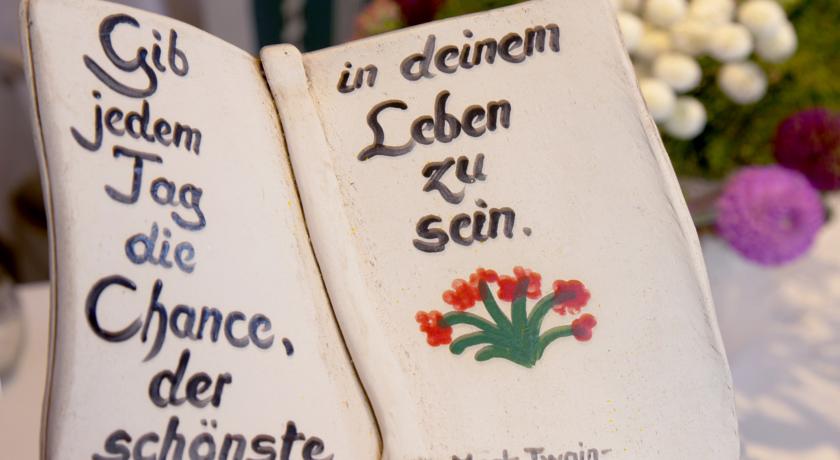 Gib
jedem
Tag
die
Chance,
der
schönste
in deinem
Leben
zu
sein.
Mark Twain-